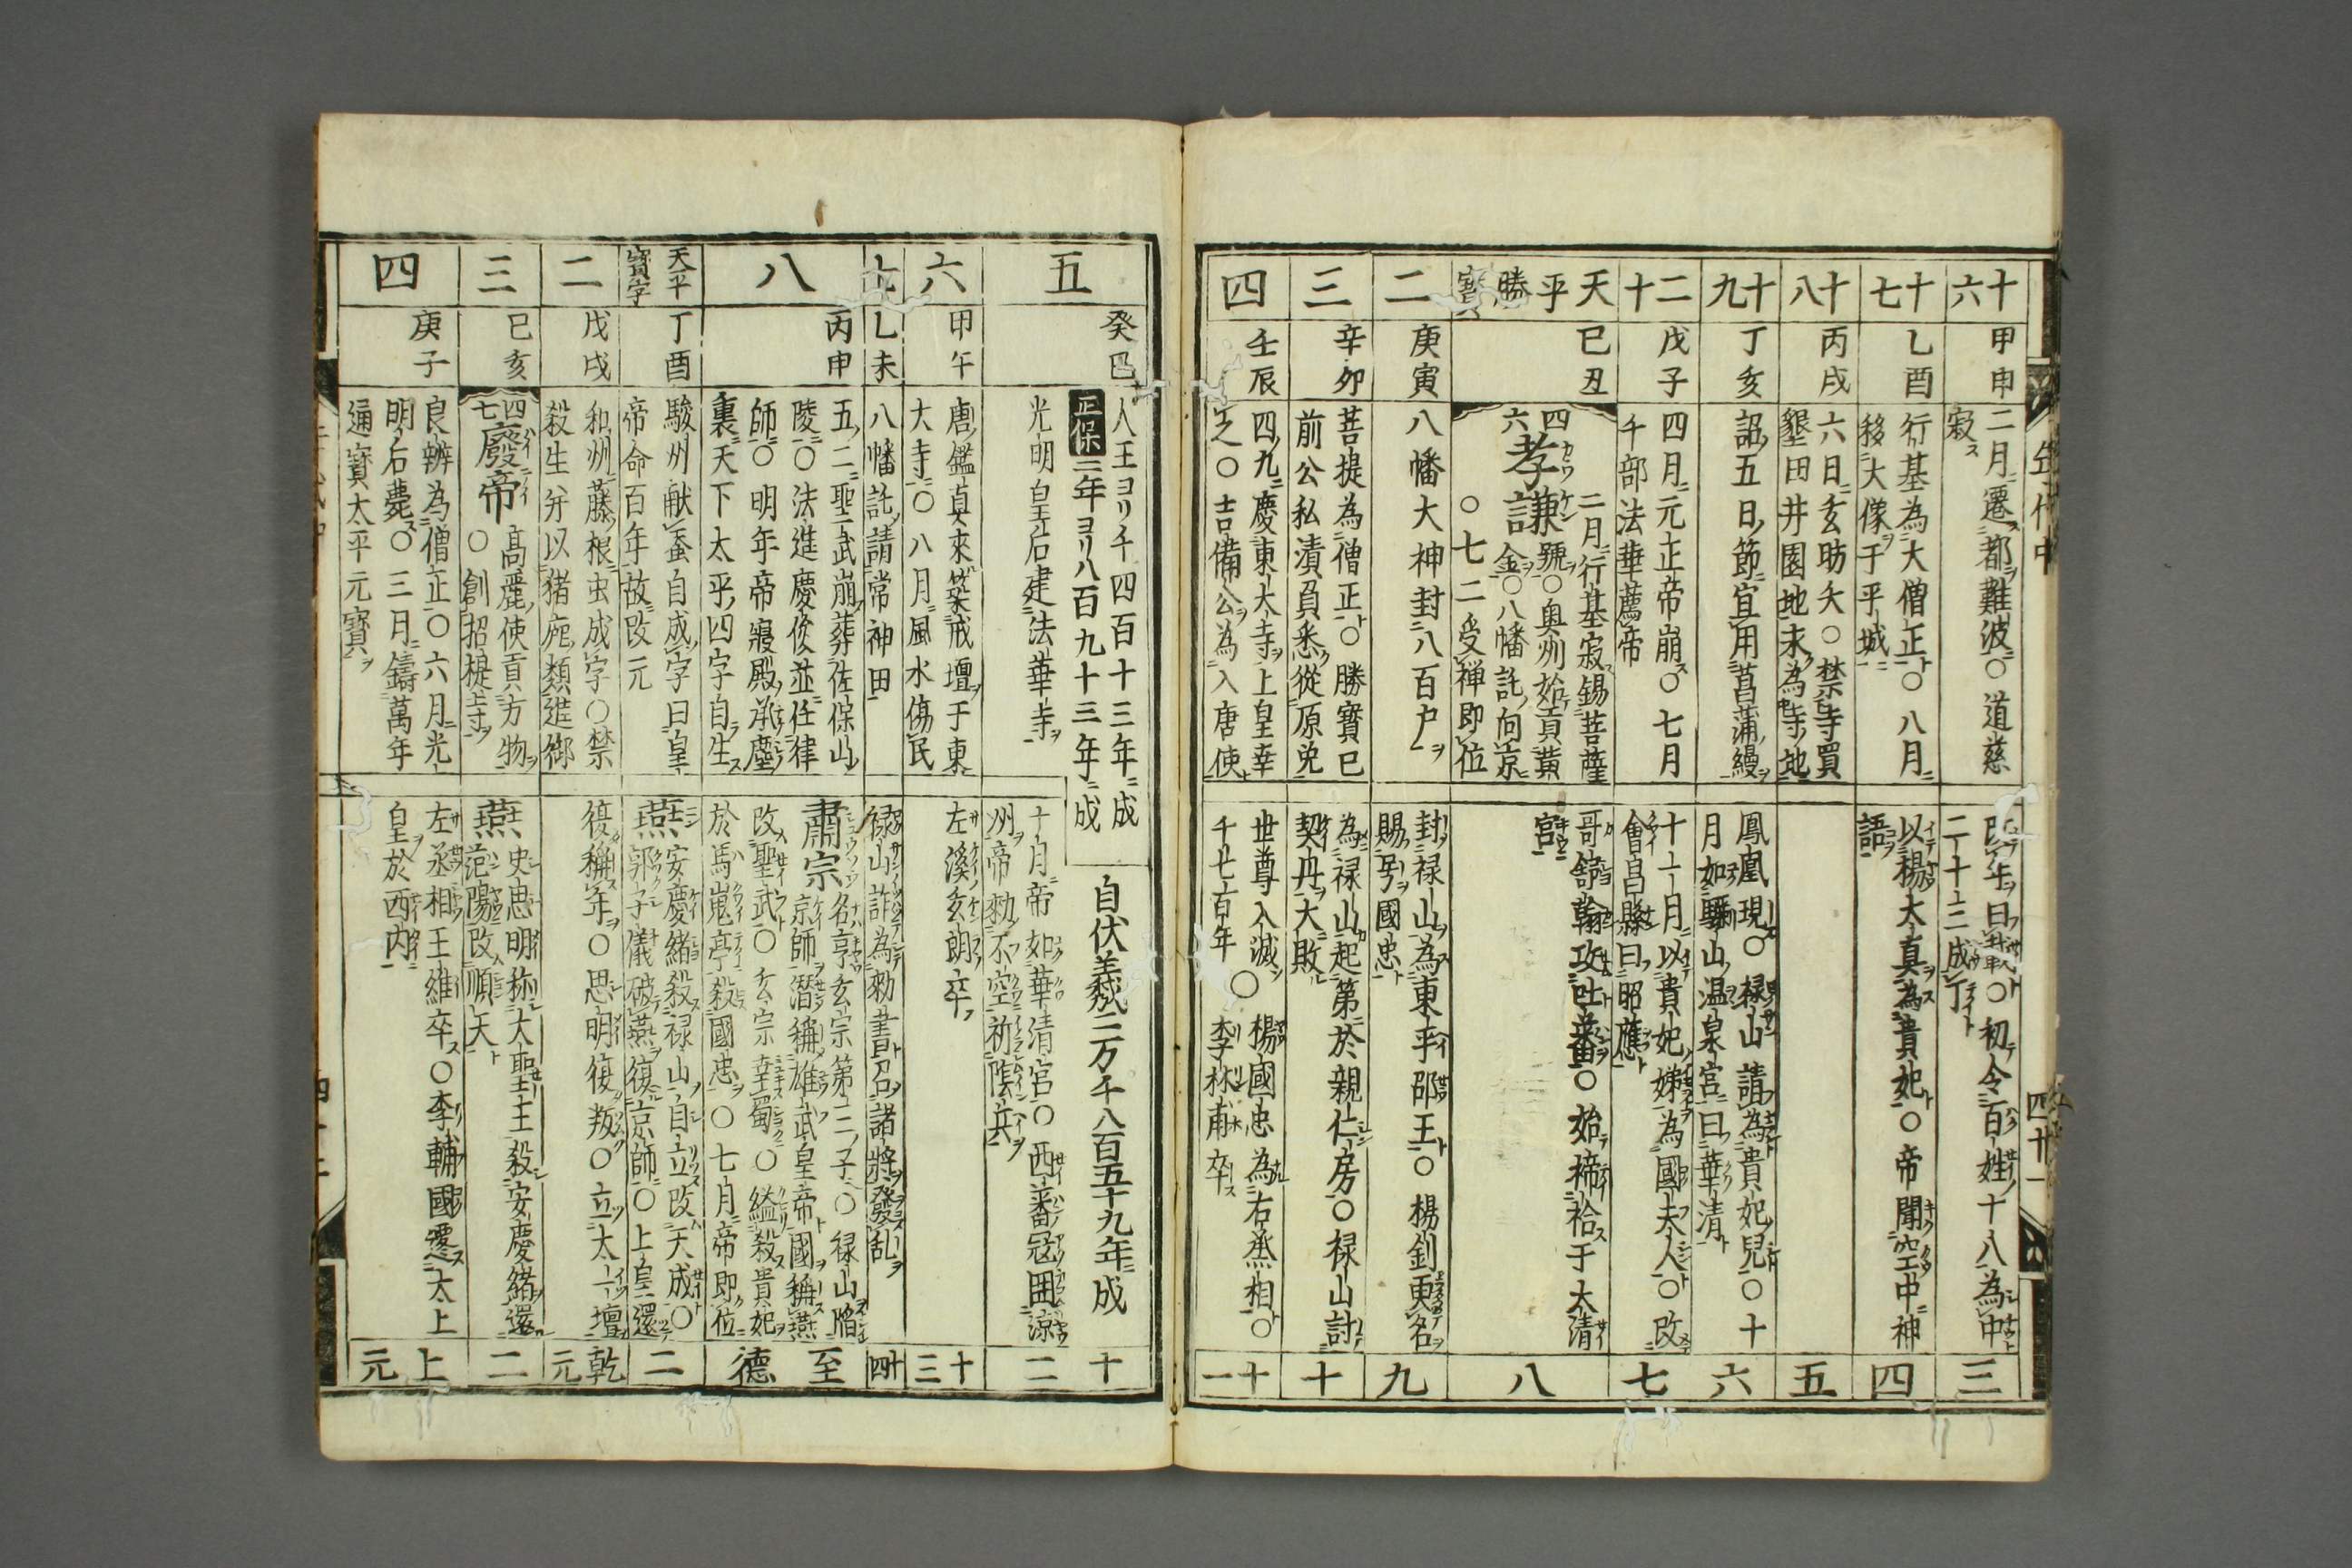 年代中
四十一
十六
甲申
二月遷都難波〇道慈
寂
改年曰載〇初令百姓十八為中
二十三成丁
三
十七
乙酉
行基為大僧正〇八月
移大像于平城
以楊太真為貴妃〇帝聞空中神
語
四
十八
丙戌
六日玄昉夭〇禁寺買
墾田井園地永為寺地
五
十九
丁亥
詔五日節宜用菖蒲縵
鳳凰現〇禄山請為貴妃兒〇十
月如驪山温泉宮曰華清
六
二十
戊子
四月元正帝崩〇七月
千部法華薦帝
十一月以貴妃姊為國夫人〇改
會昌縣曰昭應
七
天平勝寳
己丑
四六
孝謙
二月行基寂錫菩薩
號〇奥州始貢黄
金〇八幡託向京
〇七二受禅即位
哥舒翰攻吐蕃〇始禘祫于太清
宮
八
二
庚寅
八幡大神封八百户
封禄山為東平郡王〇楊釗更名
賜号國忠
九
三
辛卯
菩提為僧正〇勝寳已
前公私濆負悉從原免
為禄山起第於親仁房〇禄山討
契丹大敗
十
四
壬辰
四九慶東大寺上皇幸
之〇吉備公為入唐使
世尊入滅〇楊國忠為右丞相〇
千七百年 李林甫卒
十一
五
癸巳
人王ヨリ千四百十三年成
正保三年ヨリ八百九十三年成
自伏羲二万千八百五十九年成
光明皇后建法華寺
十月帝如華清宮〇西蕃冦囲涼
州帝勅不空祈陰兵
十二
六
甲午
唐鑑真來築戒壇于東
大寺〇八月風水傷民
左溪玄朗卒
十三
七
乙未
八幡託請常神田
禄山詐為勅書召諸將發乱
十四
八
丙申
五二聖武崩葬佐保山
陵〇法進慶俊並任律
師〇明年帝寢殿承塵
裏天下太平四字自生
肅宗
名亨玄宗第三子〇禄山陷
京師潜稱雄武皇帝國稱燕
改聖武〇玄宗幸蜀〇縊殺貴妃
於馬嵬亭殺國忠〇七月帝即位
至德
天平寳字
丁酉
駿州献蚕自成字曰皇
帝命百年故改元
燕
安慶緒殺禄山自立改天成〇
郭子儀破燕復京師〇上皇還
二
二
戊戌
和州藤根虫成字〇禁
殺生并以猪鹿類進御
復稱年〇思明復叛〇立太一壇
乾元
三
己亥
四七
廢帝
髙麗使貢方物
〇創招提寺
燕
史思明称大聖王殺安慶緒還
范陽改順天
二
四
庚子
良辨為僧正〇六月光
明后薨〇三月鑄萬年
通寳太平元寳
左丞相王維卒〇李輔國遷太上
皇於西内
上元